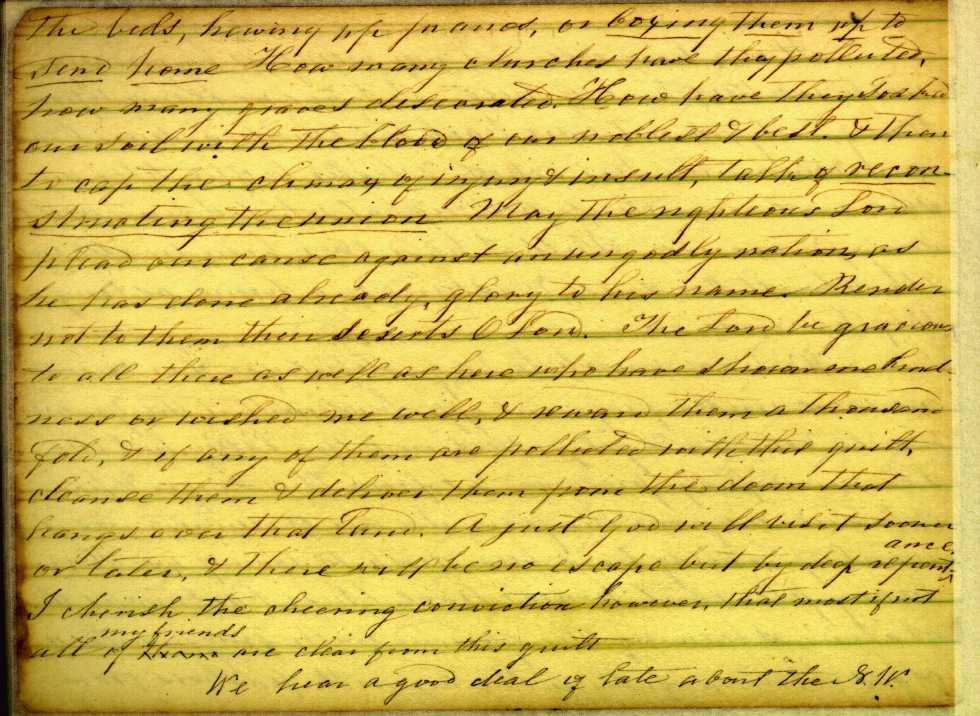 the beds, hewing up pianos, or boxing them up to
send home How many churches have they polluted,
how many graves desecrated. How have they soaked
our soil with the blood of our noblest & best. & then
to cap the climax of injury & insult, talk of recon-
structing the union May the righteous Lord
plead our cause against an ungodly nation, as
he has done already, glory to his name. Render
not to them their deserts O Lord. The Lord be gracious
to all there as well as here who have shown me kind-
ness or wished me well, & reward them a thousand
fold, & if any of them are polluted with this guilt,
cleanse them & deliver them from the doom that
hangs over that land. A just God will visit sooner
or later, & there will be no escape but by deep repentance.
I cherish the cheering conviction however, that most if not
all of my friends are clear from this guilt
We hear a good deal of late about the N.W.